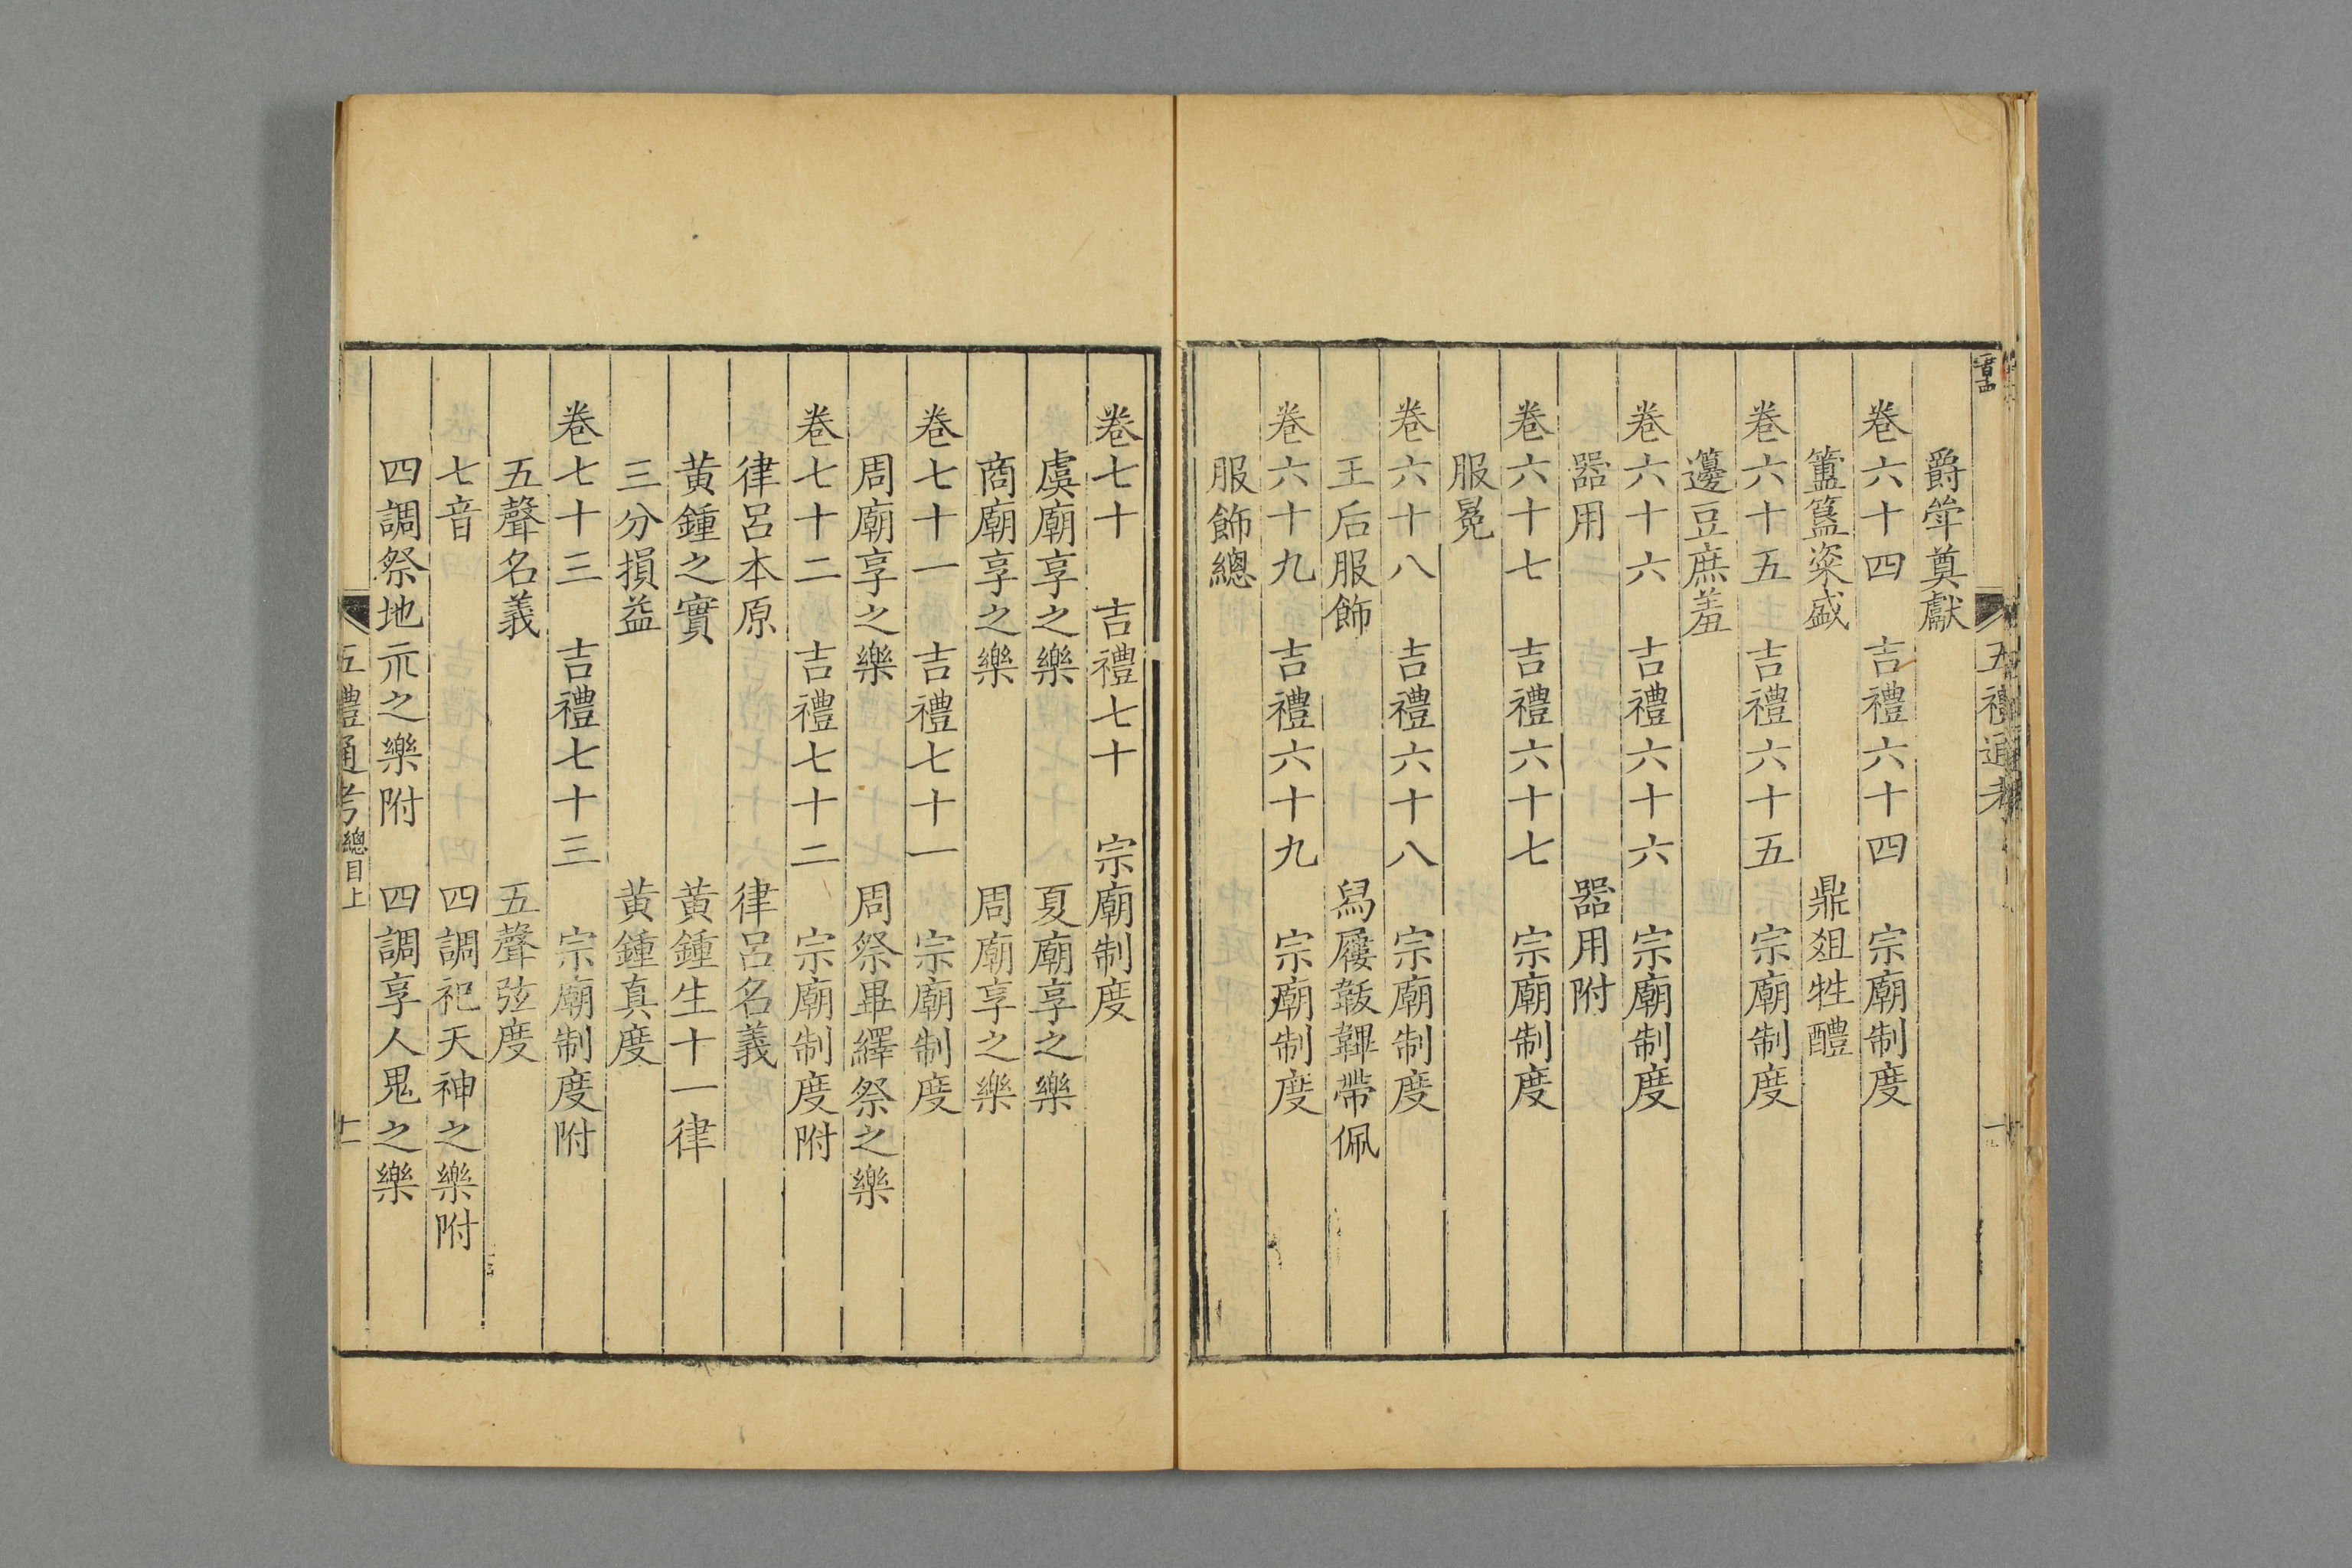 五禮通考
爵斚奠獻
卷六十四 吉禮六十四 宗廟制度
簠簋粢盛 鼎俎牲醴
卷六十五 吉禮六十五 宗廟制度
籩豆庶羞
卷六十六 吉禮六十六 宗廟制度
器用 器用附
卷六十七 吉禮六十七 宗廟制度
服冕
卷六十八 吉禮六十八 宗廟制度
王后服飾 舄屨韍韠帶佩
卷六十九 吉禮六十九 宗廟制度
服飾總
卷七十 吉禮七十 宗廟制度
虞廟享之樂 夏廟享之樂
商廟享之樂 周廟享之樂
卷七十一 吉禮七十一 宗廟制度
周廟享之樂 周祭畢繹祭之樂
卷七十二 吉禮七十二 宗廟制度附
律呂本原 律呂名義
黃鍾之實 黃鍾生十一律
三分損益 黃鍾真度
卷七十三 吉禮七十三 宗廟制度附
五聲名義 五聲弦度
七音 四調祀天神之樂附
四調祭地示之樂附 四調享人鬼之樂
五禮通考 總目上 十一